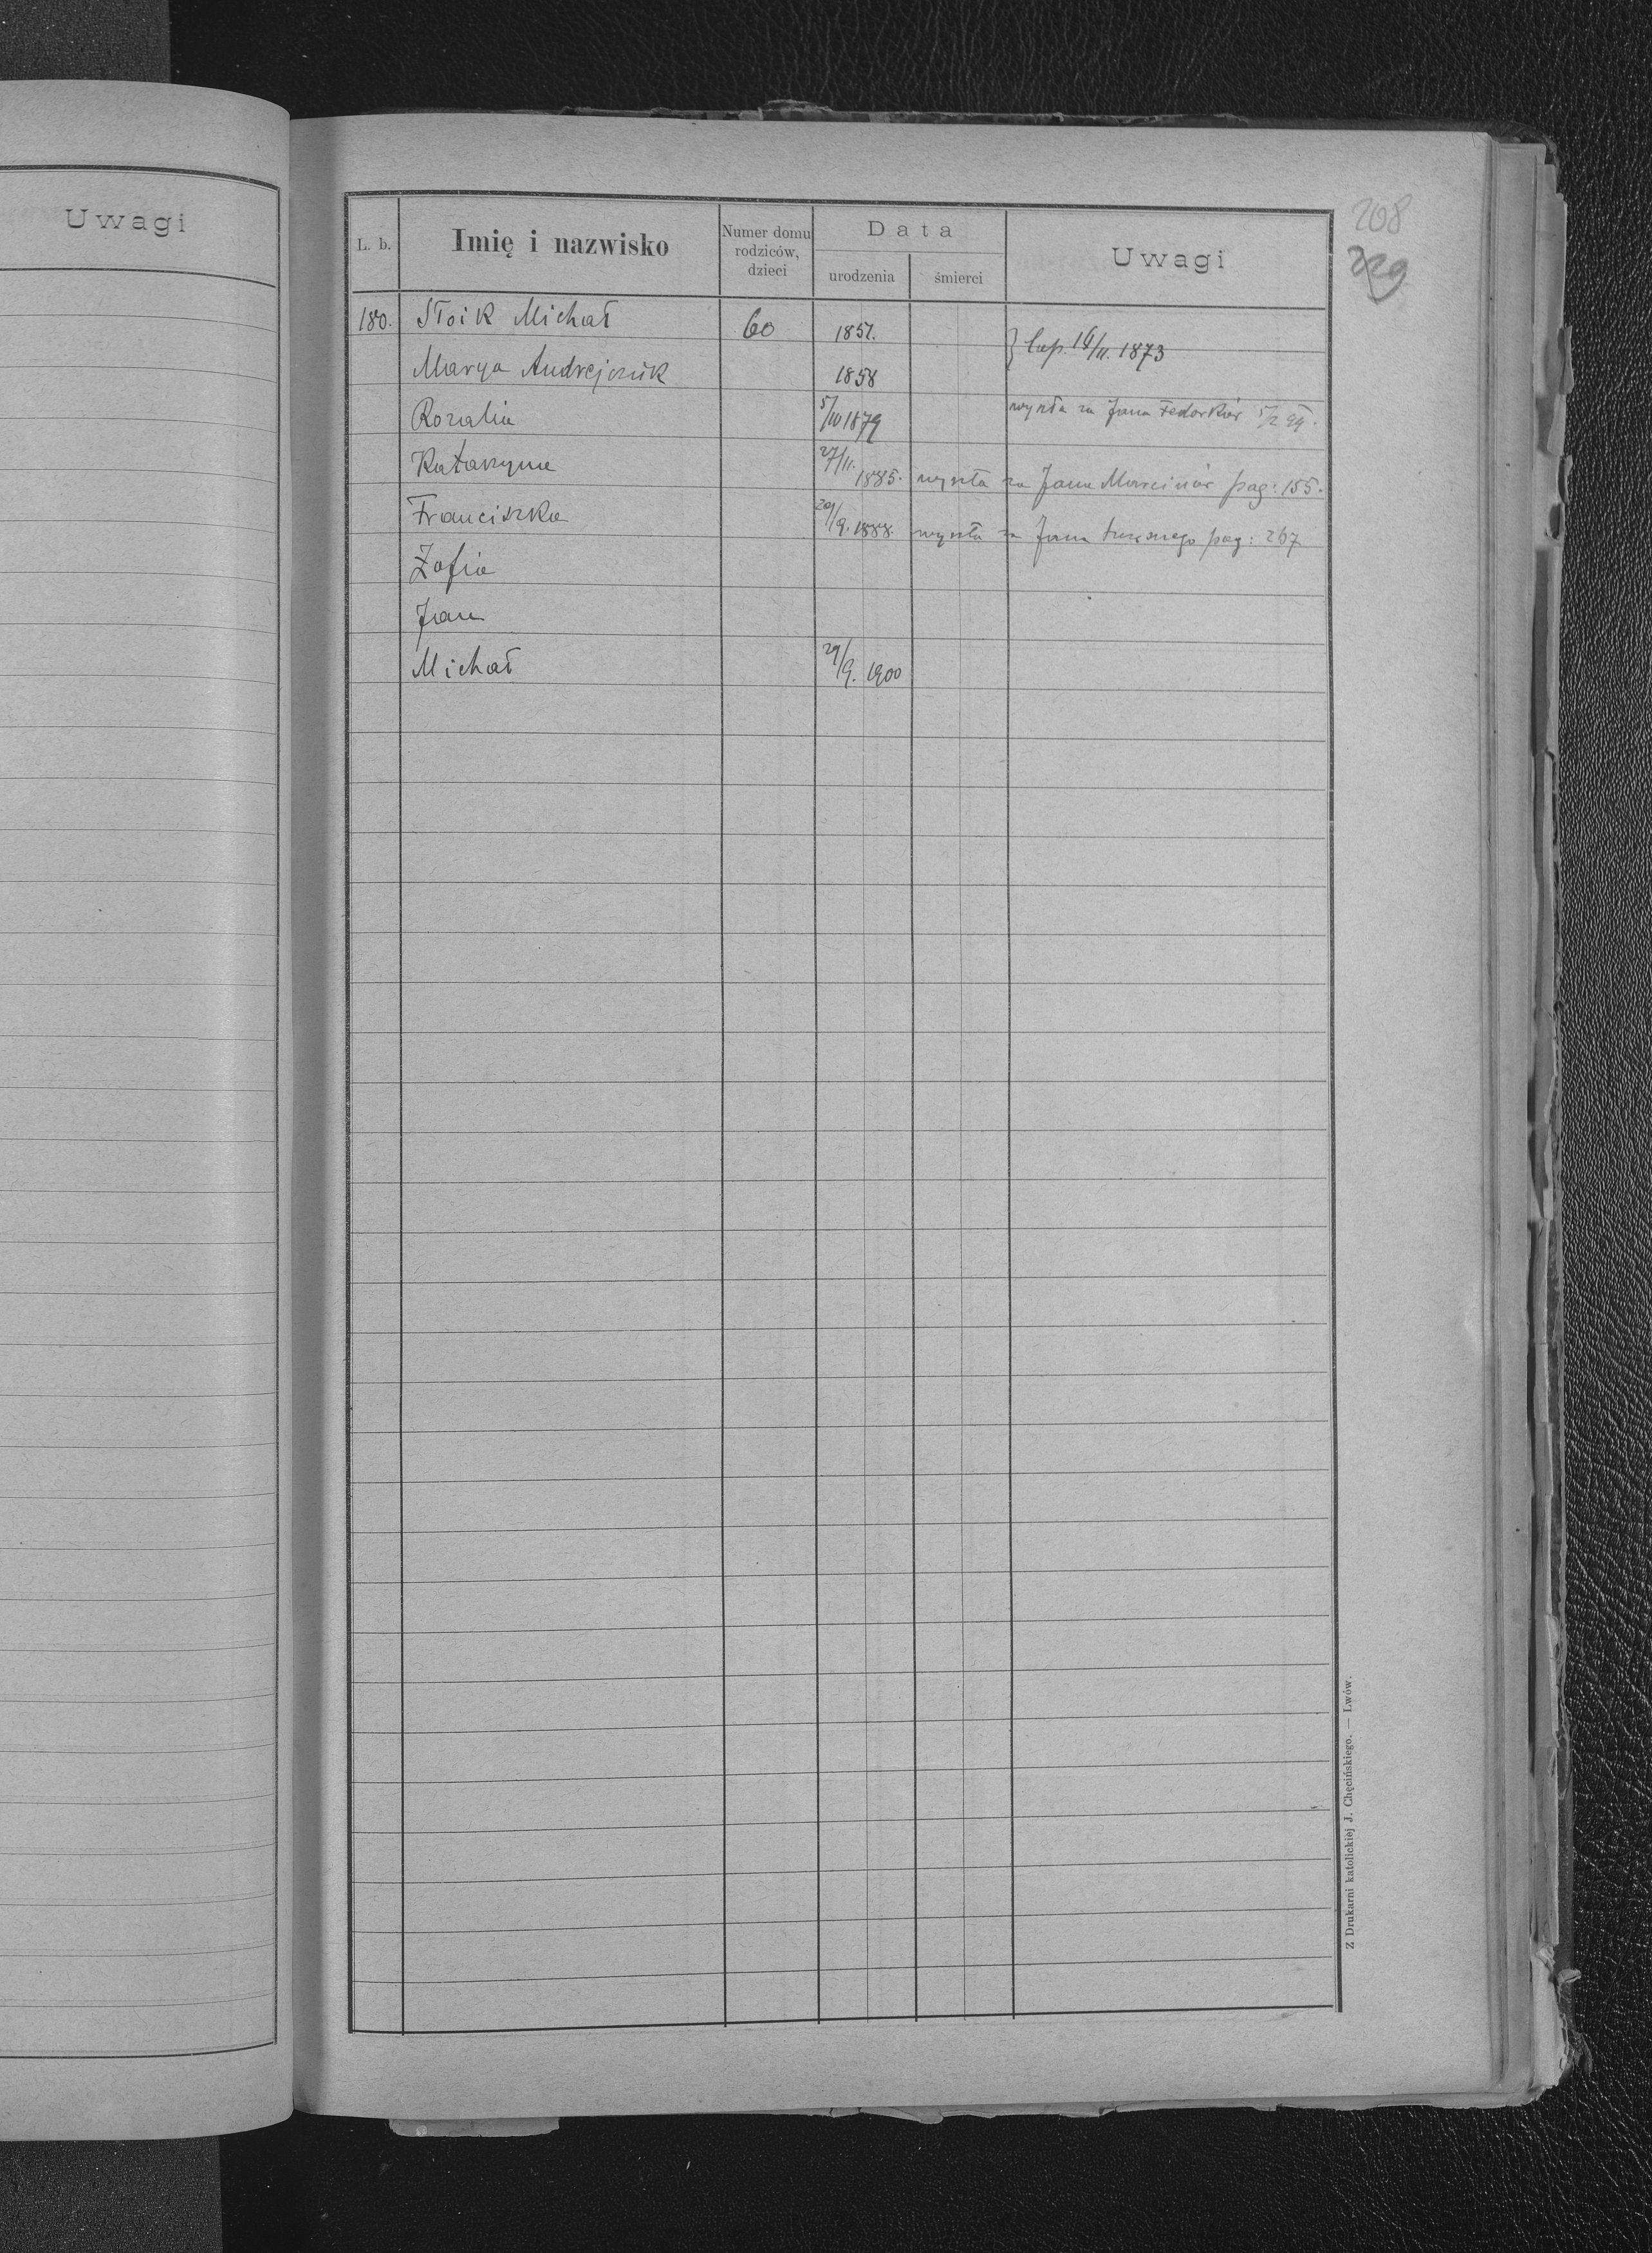 Uwagi
208
229
L. b. Imię i nazwisko Numer domu rodziców, dzieci Data urodzenia śmierci Uwagi
180. Słoik Michał 60 1851.
} cop. 16/11. 1873
Marya Andrejczuk 1858
Rozalia 5/10 1879 wyszła za Jana Fedorków 5/2 99.
Katarzyna 27/11. 1885. wyszła za Jana Marciniów pag: 155.
Franciszka 20/9. 1888. wyszła za Jana pag: 267
Zofia
Jan
Michał 29/9. 1900
Z Drukarni katolickiej J. Chęcińskiego. — Lwów.